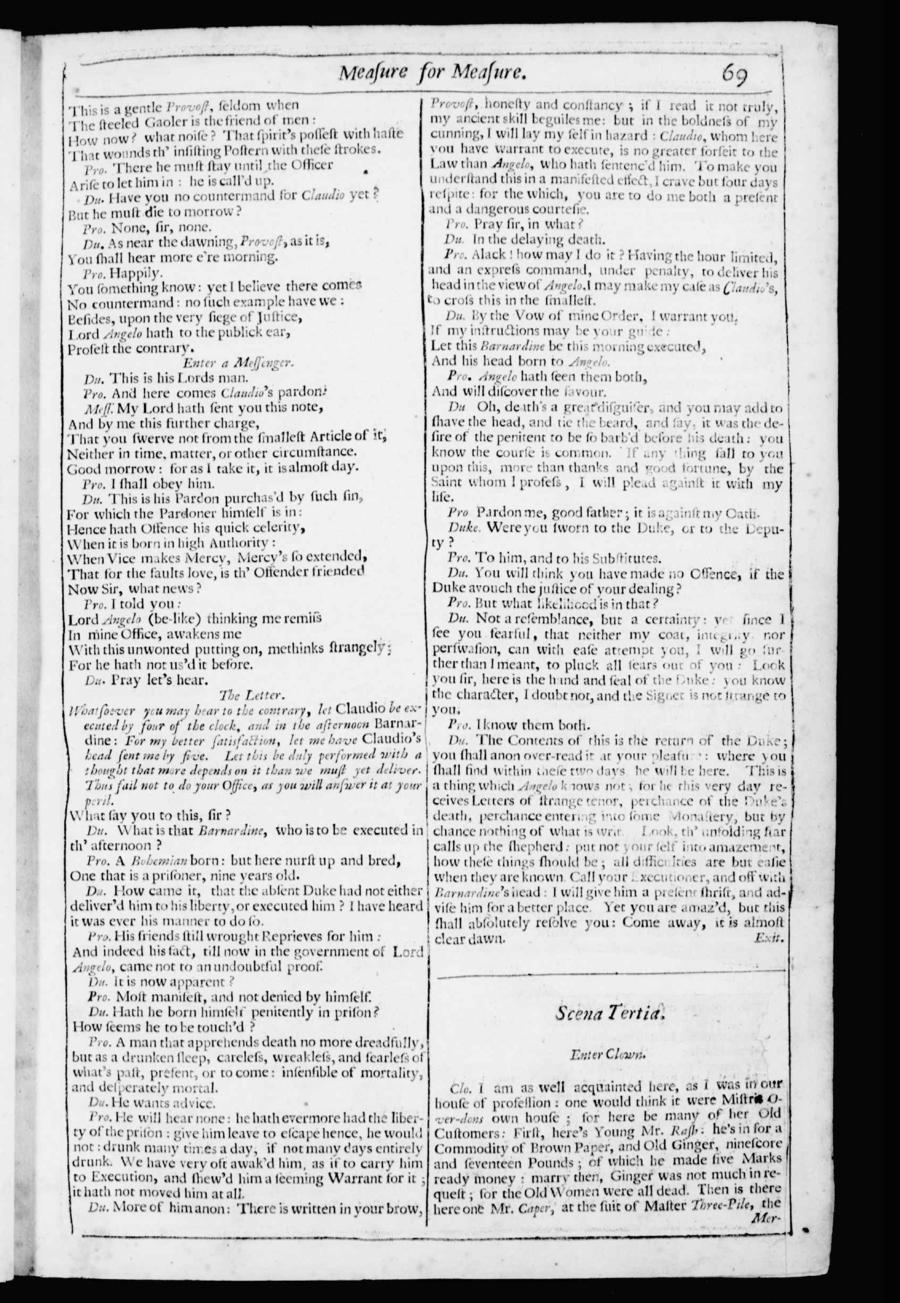 Meaſure for Meaſure. 69
This is a gentle Provoſt, ſeldom when
The ſteeled Gaoler is the friend of men:
How now? what noiſe? That ſpirit's poſſeſt with haſte
That wounds th' inſiſting Poſtern with theſe ſtrokes.
Pro. There he muſt ſtay until the Officer
Ariſe to let him in : he is call'd up.
Du. Have you no countermand for Claudio yet?
But he muſt die to morrow?
Pro. None, ſir, none.
Du. As near the dawning, Provoſt, as it is,
You ſhall hear more e're morning.
Pro. Happily.
You ſomething know: yet I believe there comes
No countermand: no ſuch example have we:
Beſides, upon the very ſiege of Juſtice,
Lord Angelo hath to the publick ear,
Profeſt the contrary.
Enter a Meſſenger.
Du. This is his Lords man.
Pro. And here comes Claudio's pardon.
Meſſ. My Lord hath ſent you this note,
And by me this further charge,
That you ſwerve not from the ſmalleſt Article of it,
Neither in time, matter, or other circumſtance.
Good morrow: for as I take it, it is almoſt day.
Pro. I ſhall obey him.
Du. This is his Pardon purchas'd by ſuch ſin,
For which the Pardoner himſelf is in:
Hence hath Offence his quick celerity,
When it is born in high Authority:
When Vice makes Mercy, Mercy's ſo extended,
That for the faults love, is th' Offender friended
Now Sir, what news?
Pro. I told you:
Lord Angelo (be-like) thinking me remiſs
In mine Office, awakens me
With this unwonted putting on, methinks ſtrangely;
For he hath not us'd it before.
Du. Pray let's hear.
The Letter.
Whatſoever you may hear to the contrary, let Claudio be ex-
ecuted by four of the clock, and in the afternoon Barnar-
dine: For my better ſatisfaction, let me have Claudio's
head ſent me by five. Let this be duly performed with a
thought that more depends on it than we muſt yet deliver.
Thus fail not to do your Office, as you will anſwer it at your
peril.
What ſay you to this, ſir?
Du. What is that Barnardine, who is to be executed in
th' afternoon?
Pro. A Bohemian born: but here nurſt up and bred,
One that is a priſoner, nine years old.
Du. How came it, that the abſent Duke had not either
deliver'd him to his liberty, or executed him? I have heard
it was ever his manner to do ſo.
Pro. His friends ſtill wrought Reprieves for him:
And indeed his fact, till now in the government of Lord
Angelo, came not to an undoubtful proof.
Du. It is now apparent?
Pro. Moſt manifeſt, and not denied by himſelf.
Du. Hath he born himſelf penitently in priſon?
How ſeems he to be touch'd?
Pro. A man that apprehends death no more dreadfully,
but as a drunken ſleep, careleſs, wreakleſs, and fearleſs of
what's paſt, preſent, or to come: inſenſible of mortality,
and deſperately mortal.
Du. He wants advice.
Pro. He will hear none: he hath evermore had the liber-
ty of the priſon: give him leave to eſcape hence, he would
not: drunk many times a day, if not many days entirely
drunk. We have very oft awak'd him, as if to carry him
to Execution, and ſhew'd him a ſeeming Warrant for it;
it hath not moved him at all.
Du. More of him anon: There is written in your brow,
Provoſt, honeſty and conſtancy; if I read it not truly,
my ancient skill beguiles me: but in the boldneſs of my
cunning, I will lay my ſelf in hazard: Claudio, whom here
you have warrant to execute, is no greater forfeit to the
Law than Angelo, who hath ſentenc'd him. To make you
underſtand this in a manifeſted effect, I crave but four days
reſpite: for the which, you are to do me both a preſent
and a dangerous courteſie.
Pro. Pray ſir, in what?
Du. In the delaying death.
Pro. Alack! how may I do it? Having the hour limited,
and an expreſs command, under penalty, to deliver his
head in the view of Angelo. I may make my caſe as Claudio's,
to croſs this in the ſmalleſt.
Du. By the Vow of mine Order, I warrant you,
If my inſtructions may be your guide:
Let this Barnardine be this morning executed,
And his head born to Angelo.
Pro. Angelo hath ſeen them both,
And will diſcover the favour.
Du Oh, death's a great diſguiſer, and you may add to
ſhave the head, and tie the beard, and ſay, it was the de-
ſire of the penitent to be ſo barb'd before his death: you
know the courſe is common. If any thing fall to you
upon this, more than thanks and good fortune, by the
Saint whom I profeſs, I will plead againſt it with my
life.
Pro Pardon me, good father; it is againſt my Oath.
Duke. Were you ſworn to the Duke, or to the Depu-
ty?
Pro. To him, and to his Subſtitutes.
Du. You will think you have made no Offence, if the
Duke avouch the juſtice of your dealing?
Pro. But what likelihood is in that?
Du. Not a reſemblance, but a certainty: yet ſince I
ſee you fearful, that neither my coat, integrity nor
perſwaſion, can with eaſe attempt you, I will go fur-
ther than I meant, to pluck all fears out of you: Look
you ſir, here is the hand and ſeal of the Duke: you know
the character, I doubt not, and the Signet is not ſtrange to
you.
Pro. I know them both.
Du. The Contents of this is the return of the Duke;
you ſhall anon over-read it at your pleaſure: where you
ſhall find within theſe two days he will be here. This is
a thing which Angelo knows not; for he this very day re-
ceives Letters of ſtrange tenor, perchance of the Duke's
death, perchance entering into ſome Monaſtery, but by
chance nothing of what is writ. Look, th' unfolding ſtar
calls up the ſhepherd: put not your ſelf into amazement,
how theſe things ſhould be; all difficulties are but eaſie
when they are known. Call your Executioner, and off with
Barnardine's head: I will give him a preſent ſhrift, and ad-
viſe him for a better place. Yet you are amaz'd, but this
ſhall abſolutely reſolve you: Come away, it is almoſt
clear dawn. Exit.
Scena Tertia.
Enter Clown.
Clo. I am as well acquainted here, as I was in our
houſe of profeſſion: one would think it were Miſtris O-
ver-dons own houſe; for here be many of her Old
Cuſtomers: Firſt, here's Young Mr. Raſh: he's in for a
Commodity of Brown Paper, and Old Ginger, nineſcore
and ſeventeen Pounds; of which he made five Marks
ready money: marry then, Ginger was not much in re-
queſt; for the Old Women were all dead. Then is there
here one Mr. Caper, at the ſuit of Maſter Three-Pile, the
Mer-